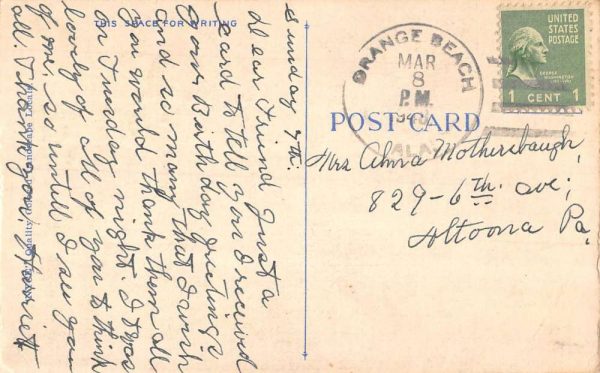 THIS SPACE FOR WRITING
Sunday 7th.
Dear Friend Just a
card to tell you I received
your Birthday greetings
and so many that I wish
you would thank them all
on Tuesday night. I was
lovely of all of you to think
of me, so untill I see you
all. Thank you Harriet
ORANGE BEACH
MAR
8
P.M.
ALA.
UNITED
STATES
POSTAGE
GEORGE
WASHINGTON
1 CENT 1
POST CARD
Mrs Alma Mothersbaugh,
829-6th. ave;
Altoona Pa.